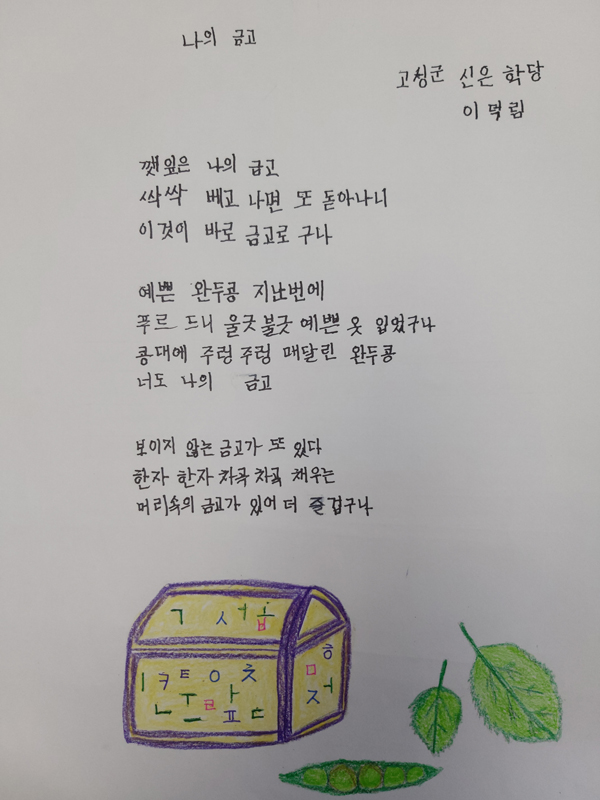 나의 금고
고창군 신은 학당
이덕림
깻잎은 나의 금고
싹싹 베고 나면 또 돋아나니
이것이 바로 금고로 구나
예쁜 완두콩 지난번에
푸르 드니 울긋불긋 예쁜 옷 입었구나
콩대에 주렁주렁 매달린 완두콩
너도 나의 금고
보이지 않는 금고가 또 있다
한자 한자 차곡 차곡 채우는
머리속의 금고가 있어 더 즐겁구나